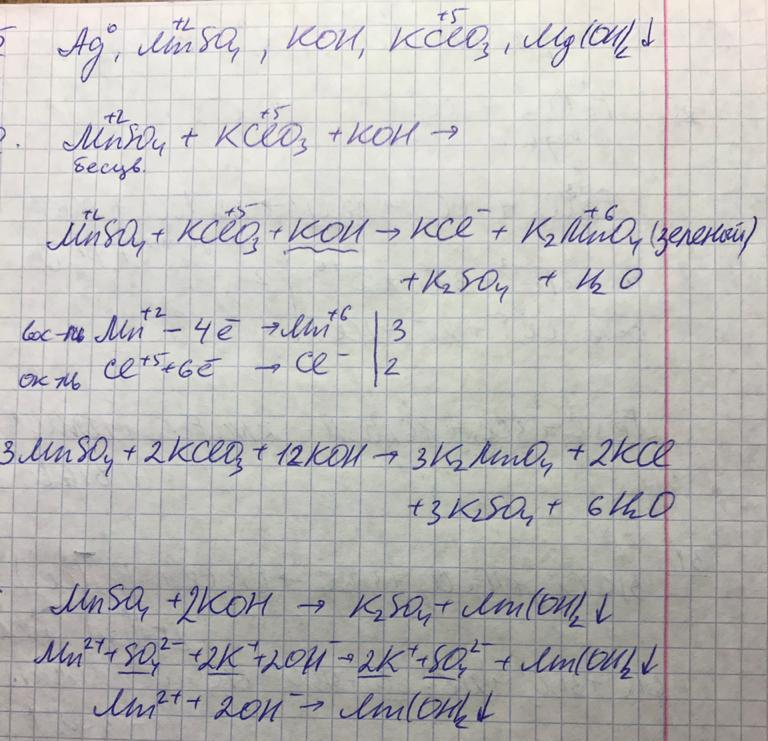 Ag⁰, Mn⁺²SO₄, KOH, KCl⁺⁵O₃, Mg(OH)₂↓
Mn⁺²SO₄ + KCl⁺⁵O₃ + KOH →
бесцв.
Mn⁺²SO₄ + KCl⁺⁵O₃ + KOH → KCl⁻ + K₂Mn⁺⁶O₄ (зеленый)
+ K₂SO₄ + H₂O
вос-ль Mn⁺² − 4ē → Mn⁺⁶ | 3
ок-ль Cl⁺⁵ + 6ē → Cl⁻ | 2
3MnSO₄ + 2KClO₃ + 12KOH → 3K₂MnO₄ + 2KCl
+ 3K₂SO₄ + 6H₂O
MnSO₄ + 2KOH → K₂SO₄ + Mn(OH)₂↓
Mn²⁺ + SO₄²⁻ + 2K⁺ + 2OH⁻ → 2K⁺ + SO₄²⁻ + Mn(OH)₂↓
Mn²⁺ + 2OH⁻ → Mn(OH)₂↓